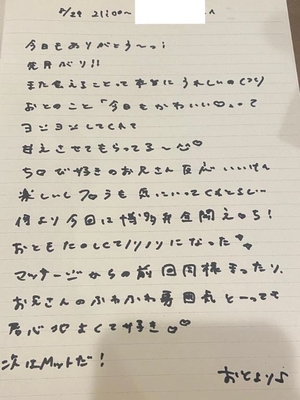 5/29 21:00〜
今日もありがとう〜っ!
先月ぶり!!
また会えることって本当にうれしいの(つ)
おとのこと「今日もかわいい♡」って
ヨシヨシしてくれて
甘えさせてもらってる〜♡
ちくび好きのお兄さん反応いいけん
楽しいし フロうも気にいってくれとるし…
何より今回は博多弁全開えっち!
おともたのしくてノリノリになった
マッサージからの前回同様まったり、
お兄さんのふわふわ雰囲気とーっても
居心地よくて好き♡
次はMットだ!
おとより♪